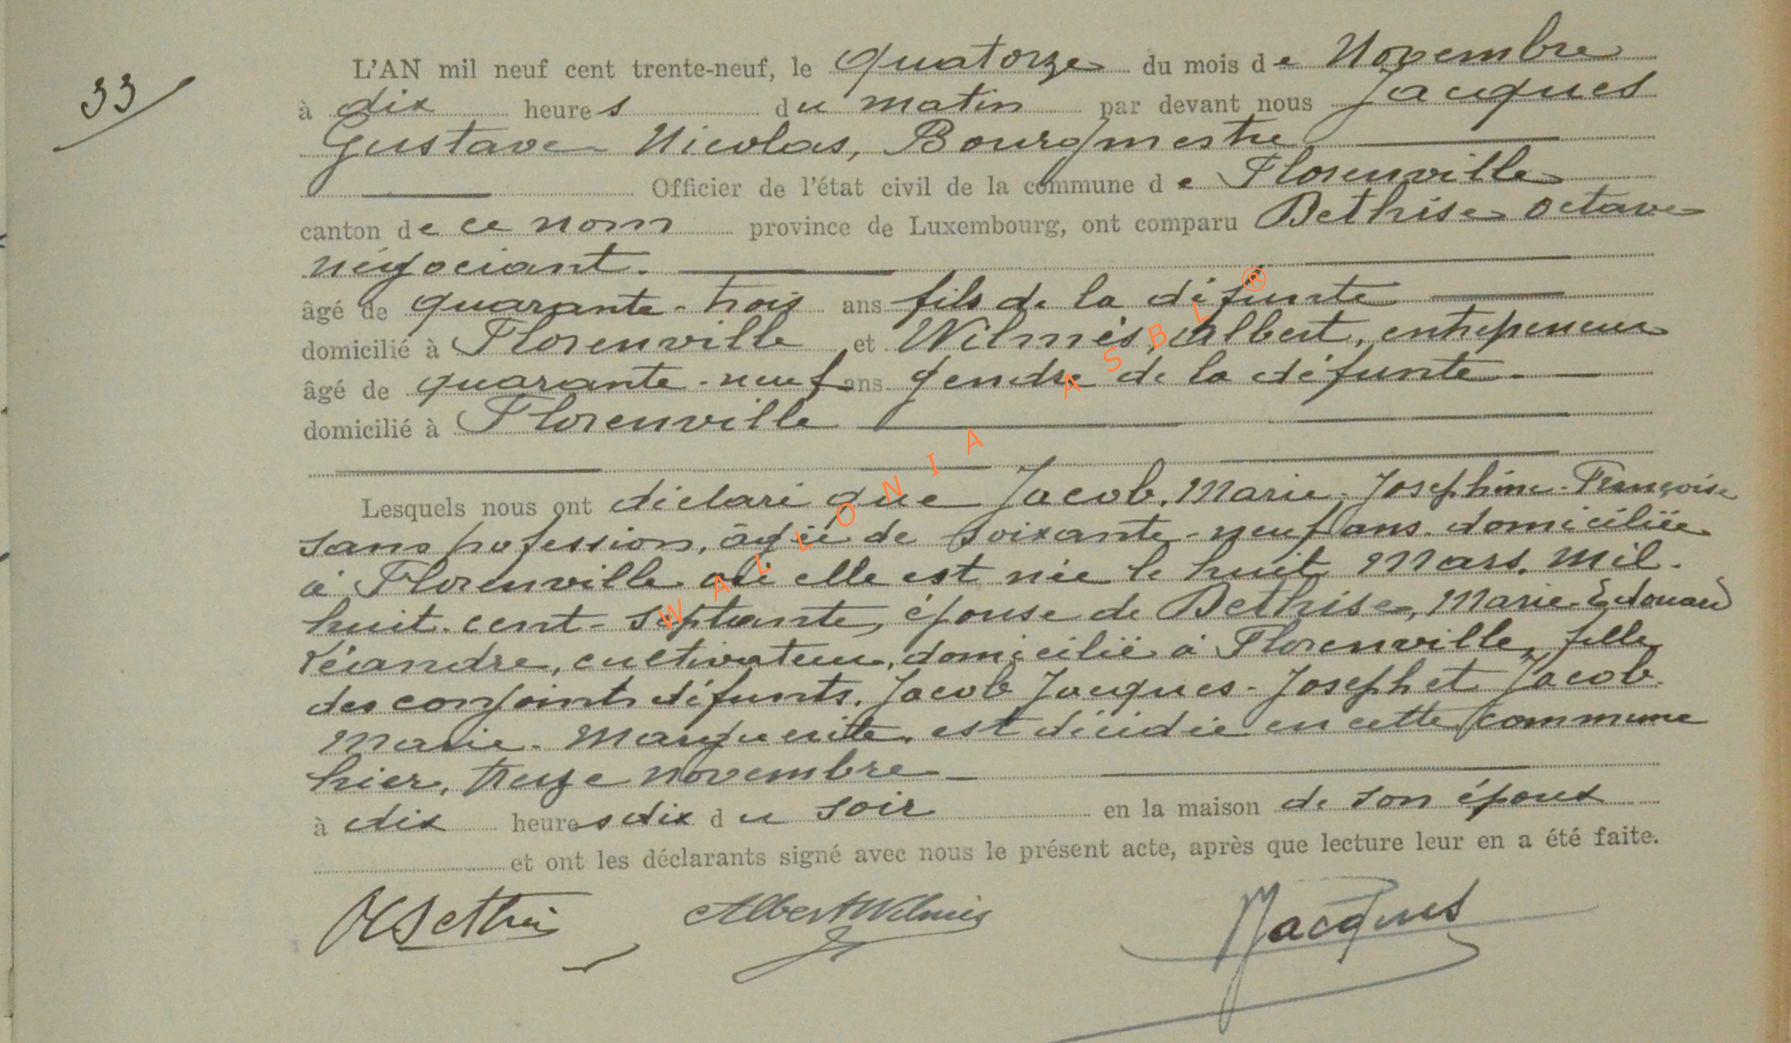 33
L'AN mil neuf cent trente-neuf, le quatorze du mois de Novembre
à dix heures du matin par devant nous Jacques
Gustave Nicolas, Bourgmestre
Officier de l'état civil de la commune de Florenville
canton de ce nom province de Luxembourg, ont comparu Bethise Octave
négociant.
âgé de quarante-trois ans fils de la défunte
domicilié à Florenville et Wilmès, Albert, entrepreneur
âgé de quarante-neuf ans gendre de la défunte.
domicilié à Florenville
Lesquels nous ont déclaré que Jacob, Marie-Josephine-Françoise
sans profession, âgée de soixante-neuf ans. domiciliée
à Florenville où elle est née le huit Mars, mil-
huit-cent-septante, épouse de Bethise, Marie-Edouard
Léandre, cultivateur, domicilié à Florenville, fille
des conjoints défunts, Jacob Jacques-Joseph et Jacob
Marie-Marguerite, est décédée en cette commune
hier, treize novembre
à dix heures dix du soir en la maison de son époux
et ont les déclarants signé avec nous le présent acte, après que lecture leur en a été faite.
Albert Wilmès Jacques
WALLONIA ASBL ®